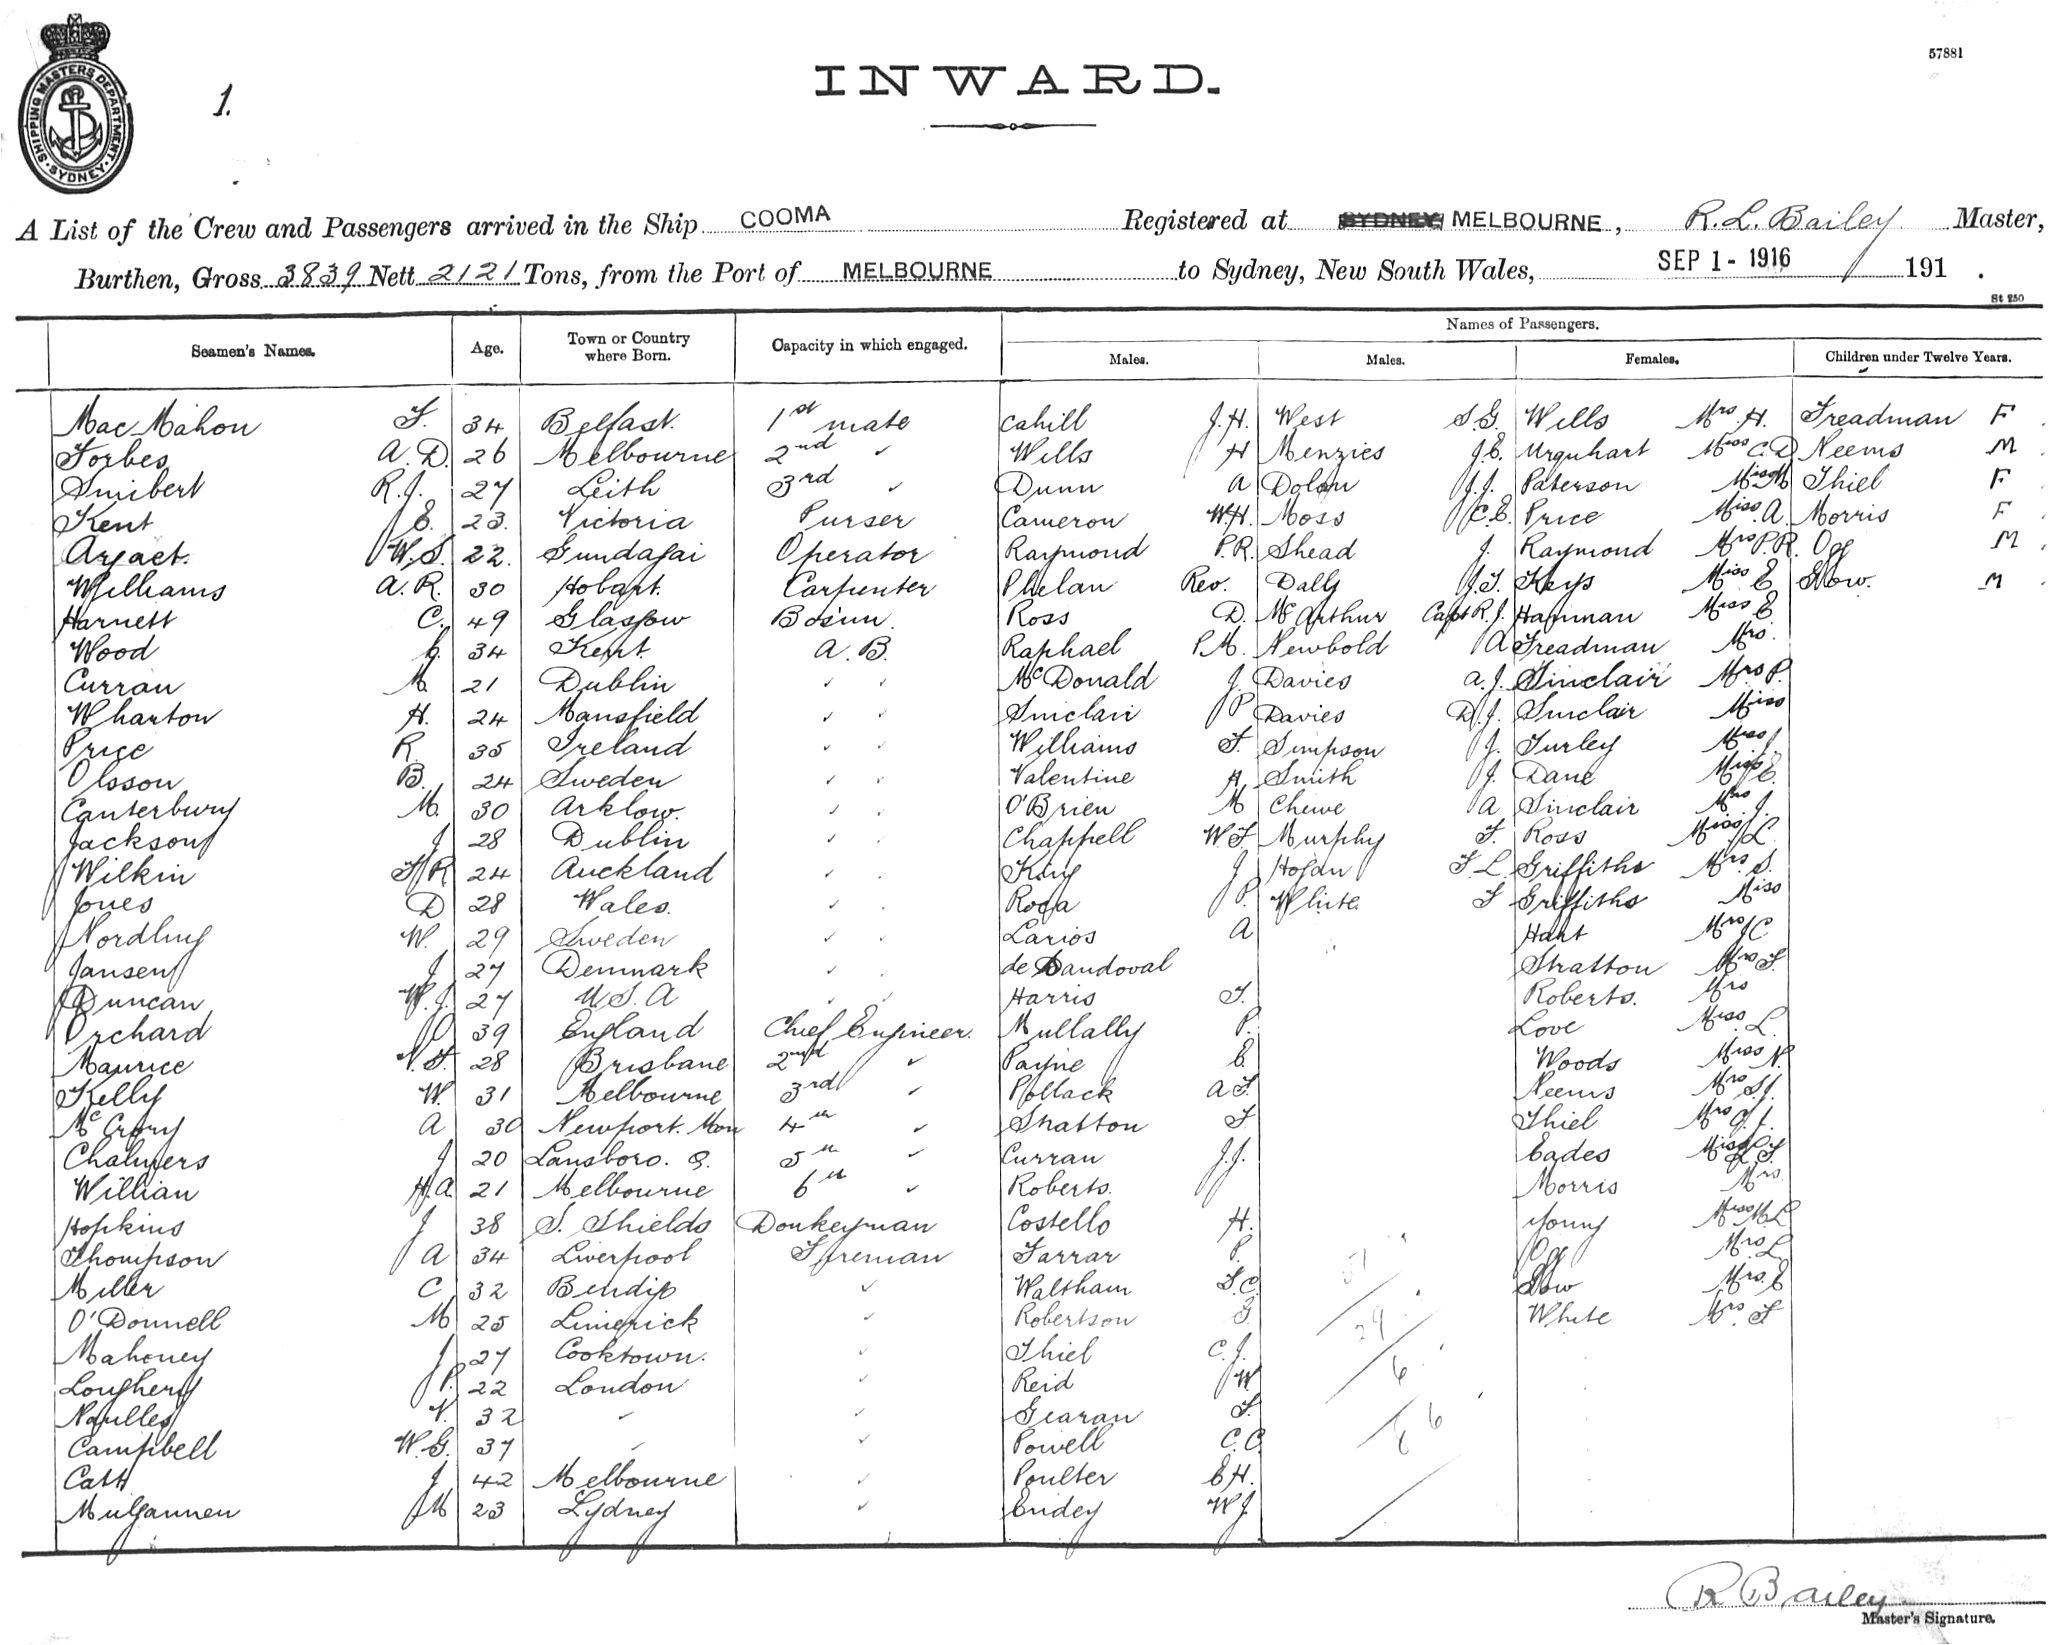 57881
SHIPPING MASTERS DEPARTMENT. SYDNEY
1.
INWARD.
A List of the Crew and Passengers arrived in the Ship COOMA Registered at SYDNEY, MELBOURNE, R. L. Bailey Master,
Burthen, Gross 3839 Nett 2121 Tons, from the Port of MELBOURNE to Sydney, New South Wales, SEP 1 - 1916 191 .
St 250
Names of Passengers.
Seamen's Names. Age. Town or Country where Born. Capacity in which engaged. Males. Males. Females. Children under Twelve Years.
Mac Mahon F. 34 Belfast. 1st mate Cahill J.H. West S.G. Wills Mrs H. Freadman F
Forbes A.D. 26 Melbourne 2nd ✓ Wills H Menzies J.E. Urquhart Miss C.D Neems M
Smibert R.J. 27 Leith 3rd ✓ Dunn A Dolan J.J. Paterson Miss M Thiel F
Kent E. 23. Victoria Purser Cameron W.H. Moss C.E. Price Miss. A. Morris F
W.S. 22. Gundagai Operator Raymond P.R. Shead J. Raymond Mrs P.R. Og M
Williams A.R. 30 Hobart. Carpenter Phelan Rev. Daly J.F. Keys Miss E Slow. M
Harnett C. 49 Glasgow Bosun. Ross D. McArthur Capt R.J. Hanman Miss E
Wood 34 Kent. A.B. Raphael P.M. Newbold A Freadman Mrs.
Curran M 21 Dublin ✓ ✓ McDonald J. Davies A.J. Sinclair Mrs P.
Wharton H. 24 Mansfield ✓ ✓ Sinclair P Davies D.J. Sinclair Miss
Price R. 35 Ireland ✓ ✓ Williams F. Simpson J. Turley Miss J.
Olsson B. 24 Sweden ✓ ✓ Valentine H Smith J. Dane Miss E.
Canterbury M. 30 Arklow. ✓ ✓ O'Brien M Chewe A Sinclair Mrs J.
Jackson J 28 Dublin ✓ ✓ Chappell W.F. Murphy F. Ross Miss L.
Wilkin F R 24 Auckland ✓ ✓ King J Hogan F.L. Griffiths Mrs S.
Jones D 28 Wales. ✓ ✓ Roca P. White F Griffiths Miss
Nordling W. 29 Sweden ✓ ✓ Larios A Hant Mrs J C
Jansen J 27 Denmark ✓ ✓ de Sandoval Stratton Mrs F.
Duncan W.J. 27 U.S.A ✓ ✓ Harris F. Roberts. Mrs
Orchard O 39 England Chief Engineer. Mullally P. Love Miss L.
Maurice V.F. 28 Brisbane 2nd ✓ Payne E. Woods Miss N.
Kelly W. 31 Melbourne 3rd ✓ Pollack A F. Neems Mrs S.J.
McCrory A 30 Newport. Mon 4th ✓ Stratton F Thiel Mrs
Chalmers J 20 Lansboro. Q. 5th ✓ Curran J.J. Eades Miss L.F.
Willian H.A. 21 Melbourne 6th ✓ Roberts. Morris Mrs.
Hopkins J 38 S. Shields Donkeyman Costello H. Young Miss M.L
Thompson A 34 Liverpool Fireman Farrar P. Og Mrs L.
Miller C 32 Bendigo ✓ Waltham F.C. Slow Mrs. E
O'Donnell M 25 Limerick ✓ Robertson G. White Mrs. F
Mahoney J 27 Cooktown. ✓ Thiel C.J.
Loughery P. 22 London ✓ Reid W
Naylles V. 32 ✓ ✓ Gearan F.
Campbell W.G. 37 ✓ ✓ Powell C.C.
Catt J 42 Melbourne ✓ Poulter E.H.
Mulgannen M 23 Lydney ✓ Endey W.J.
51
29
6
6 6
R Bailey
Master's Signature.